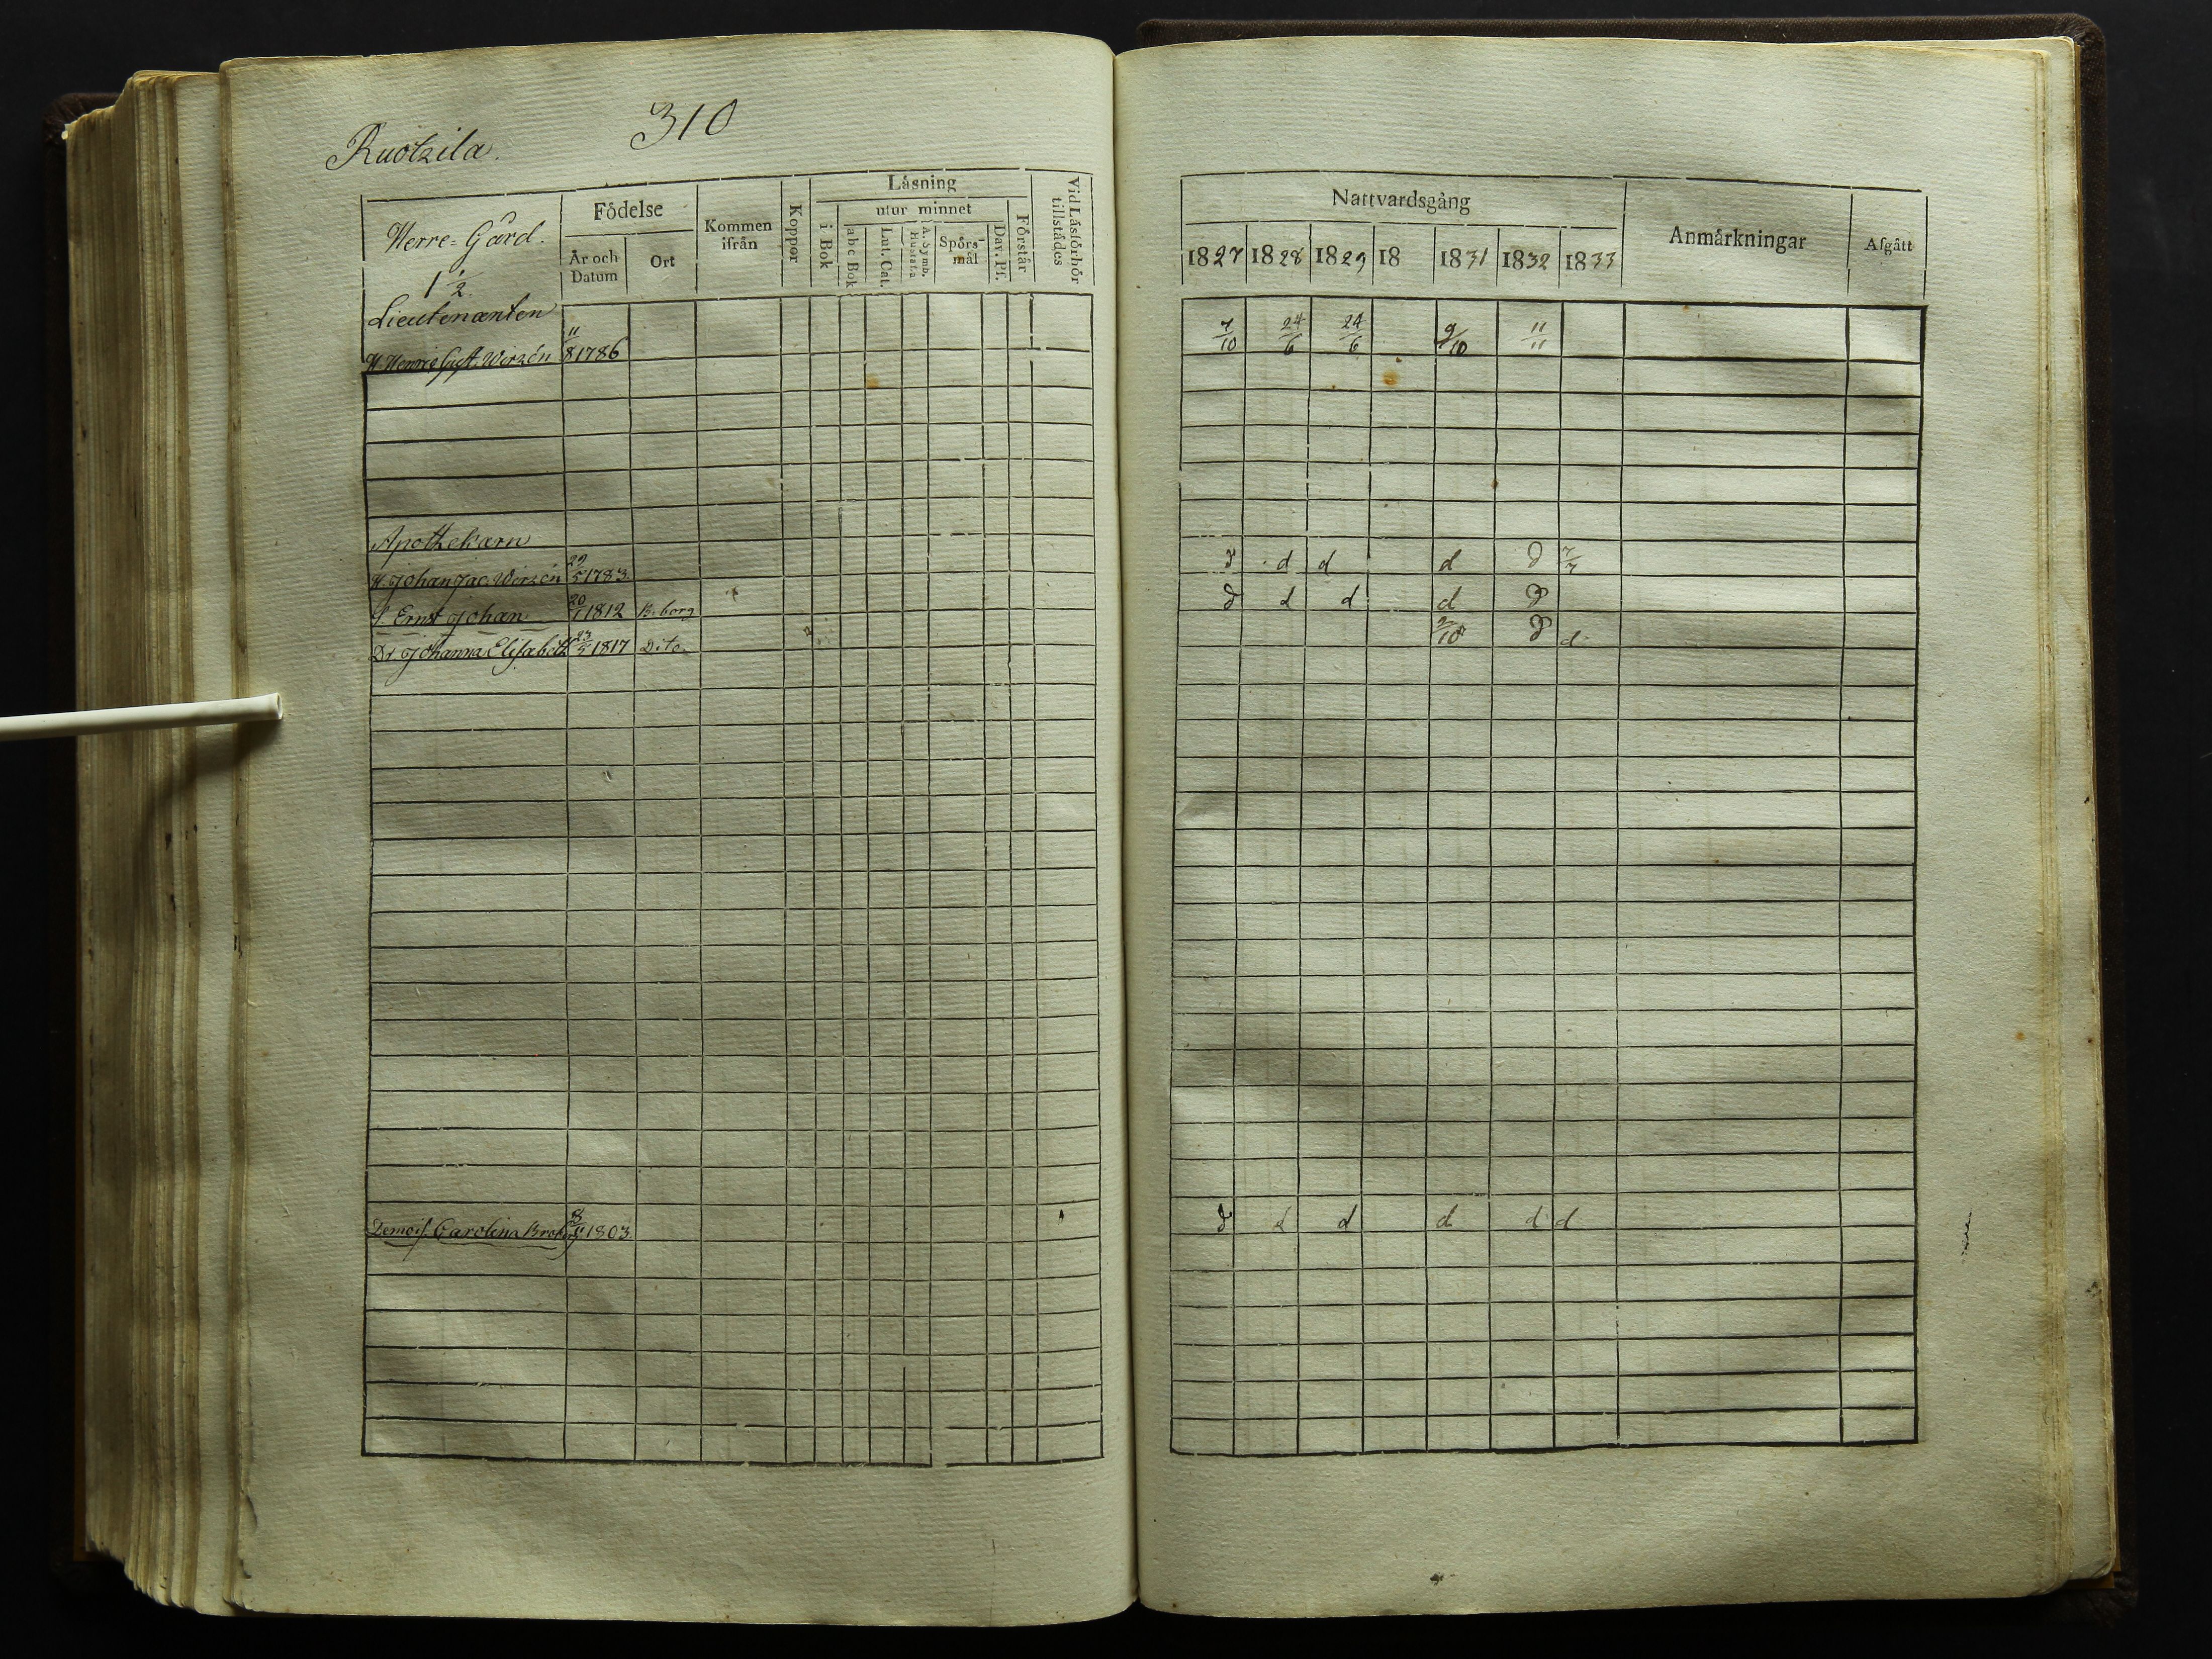 310
Ruotzila.
Herre-Gård.
1 1/2.
Födelse
År och Datum
Ort
Kommen ifrån
Koppor
Läsning
i Bok
utur minnet
a b c Bok
Lut. Cat.
A. Symb. Hustafla
Spörsmål
Dav. Ps.
Förstår
Vid Läsförhör tillstädes
Nattvardsgång
1827 1828 1829 18 1831 1832 1833
Anmärkningar
Afgått
Lieutenanten
H. Henric Gust. Wirzén 11/8 1786 7/10 24/6 24/6 9/10 11/11
Apothekarn
H. Johan Jac. Wirzén 29/5 1783. d d d d d 7/7
S. Ernst Johan 20/1 1812 B.borg d d d d d
Dr. Johanna Elisabeth 23/5 1817 Dito 9/10 d d
Demois. Carolina Broberg 1803. d d d d d d